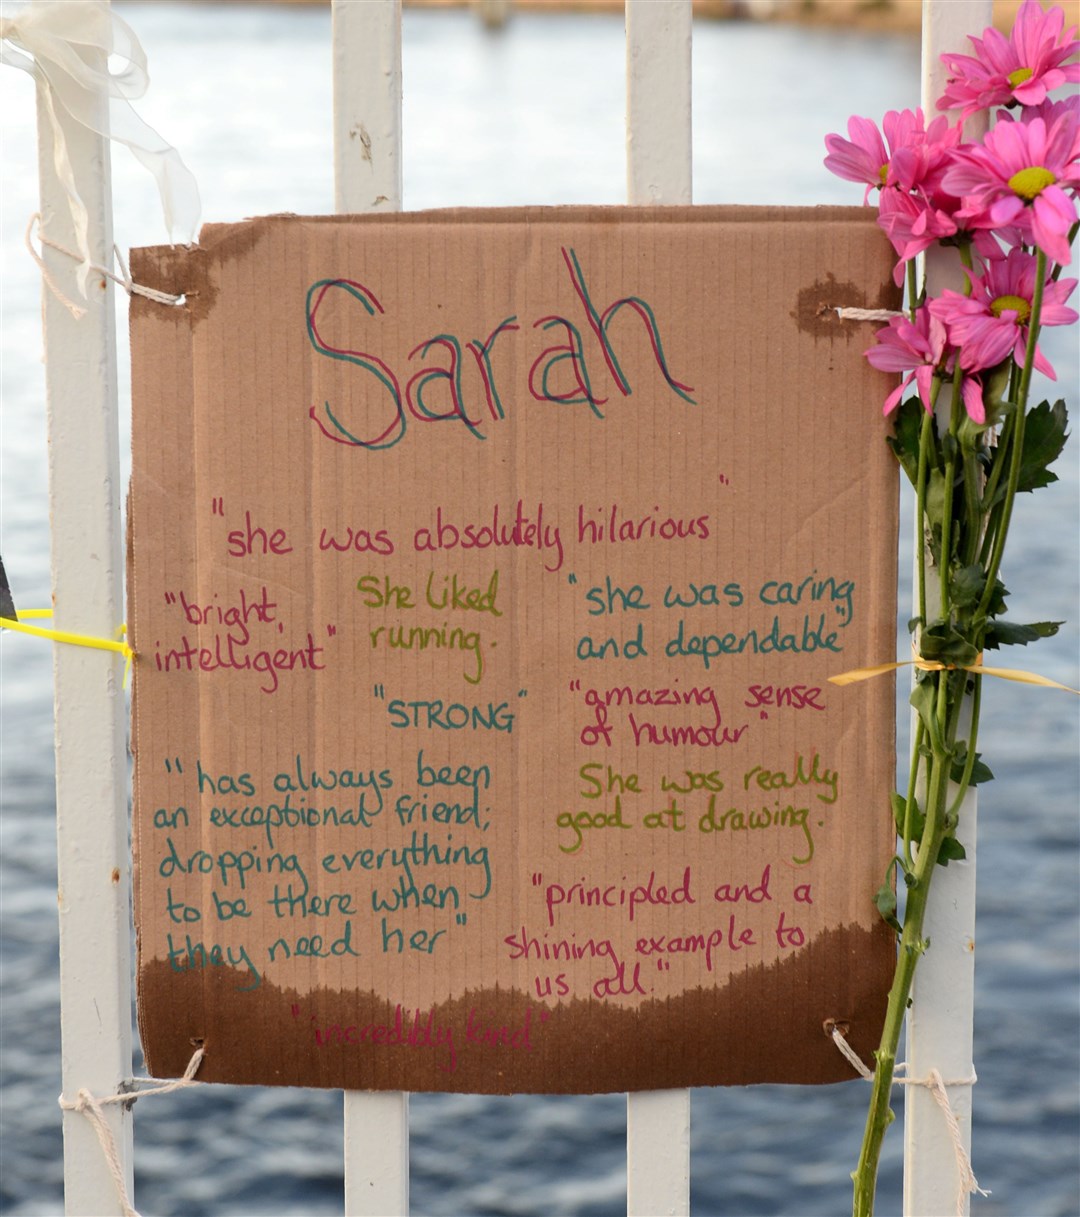 Sarah
"she was absolutely hilarious"
"bright,
intelligent"
She liked
running.
"she was caring
and dependable"
"STRONG"
"amazing sense
of humour"
"has always been
an exceptional friend;
dropping everything
to be there when
they need her"
She was really
good at drawing.
"principled and a
shining example to
us all."
"incredibly kind"